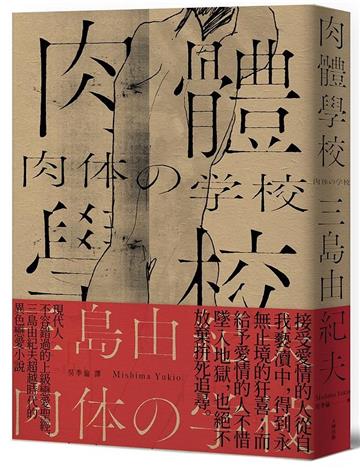 肉體學校
肉体の学校
接受愛情的人從自
我褻瀆中，得到永
無止境的狂喜；而
給予愛情的人不惜
墜入地獄，也絕不
放棄拼死追尋。
三島由
吳季倫 譯
Mishima Yukio
肉体の学校
現代人
不容錯過的上級戀愛聖經
三島由紀夫超越時代的
異色戀愛小說
肉體學校
肉体の学校
三島由紀夫